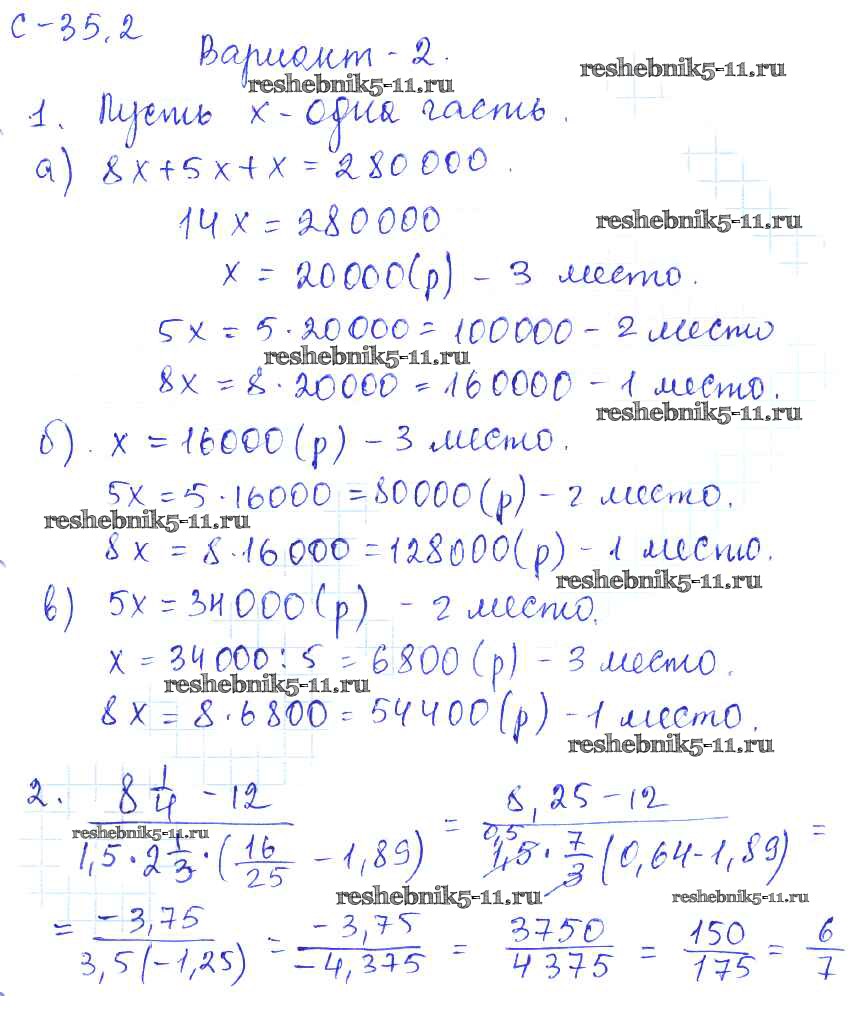 С-35.2
Вариант-2.
reshebnik5-11.ru
reshebnik5-11.ru
1. Пусть x - одна часть.
а) 8x+5x+x = 280000.
14x = 280000
reshebnik5-11.ru
x = 20000(р) - 3 место.
5x = 5·20000 = 100000 - 2 место
reshebnik5-11.ru
8x = 8·20000 = 160000 - 1 место.
reshebnik5-11.ru
б). x = 16000(р) - 3 место.
5x = 5·16000 = 80000(р) - 2 место.
reshebnik5-11.ru
8x = 8·16000 = 128000(р) - 1 место.
reshebnik5-11.ru
в) 5x = 34000(р) - 2 место.
x = 34000:5 = 6800(р) - 3 место.
reshebnik5-11.ru
8x = 8·6800 = 54400(р) - 1 место.
reshebnik5-11.ru
2. (8 1/4 - 12)/(1,5·2 1/3·(16/25 - 1,89)) = (8,25 - 12)/(1,5·7/3(0,64-1,89)) =
0,5
reshebnik5-11.ru
reshebnik5-11.ru
reshebnik5-11.ru
= -3,75/(3,5(-1,25)) = -3,75/-4,375 = 3750/4375 = 150/175 = 6/7